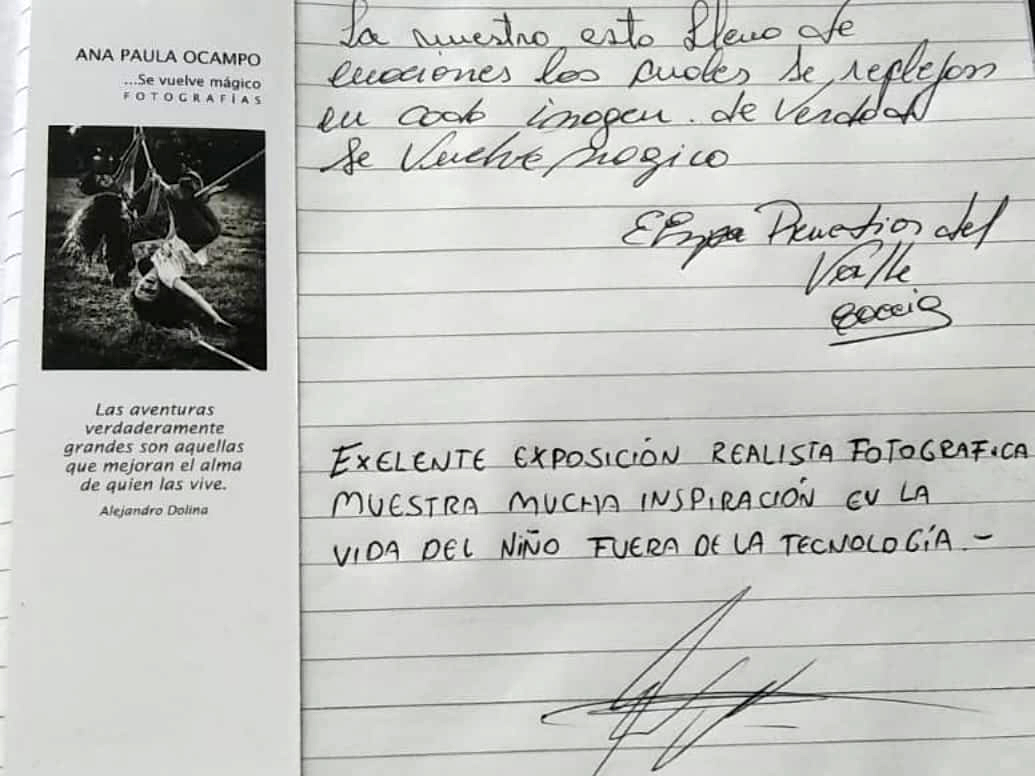 ANA PAULA OCAMPO
...Se vuelve mágico
FOTOGRAFÍAS
Las aventuras
verdaderamente
grandes son aquellas
que mejoran el alma
de quien las vive.
Alejandro Dolina
La muestra esta llena de
emociones las cuales se reflejan
en cada imagen. de Verdad
Se Vuelve Magico
del
Valle
EXELENTE EXPOSICIÓN REALISTA FOTOGRAFICA
MUESTRA MUCHA INSPIRACIÓN EN LA
VIDA DEL NIÑO FUERA DE LA TECNOLOGÍA.-